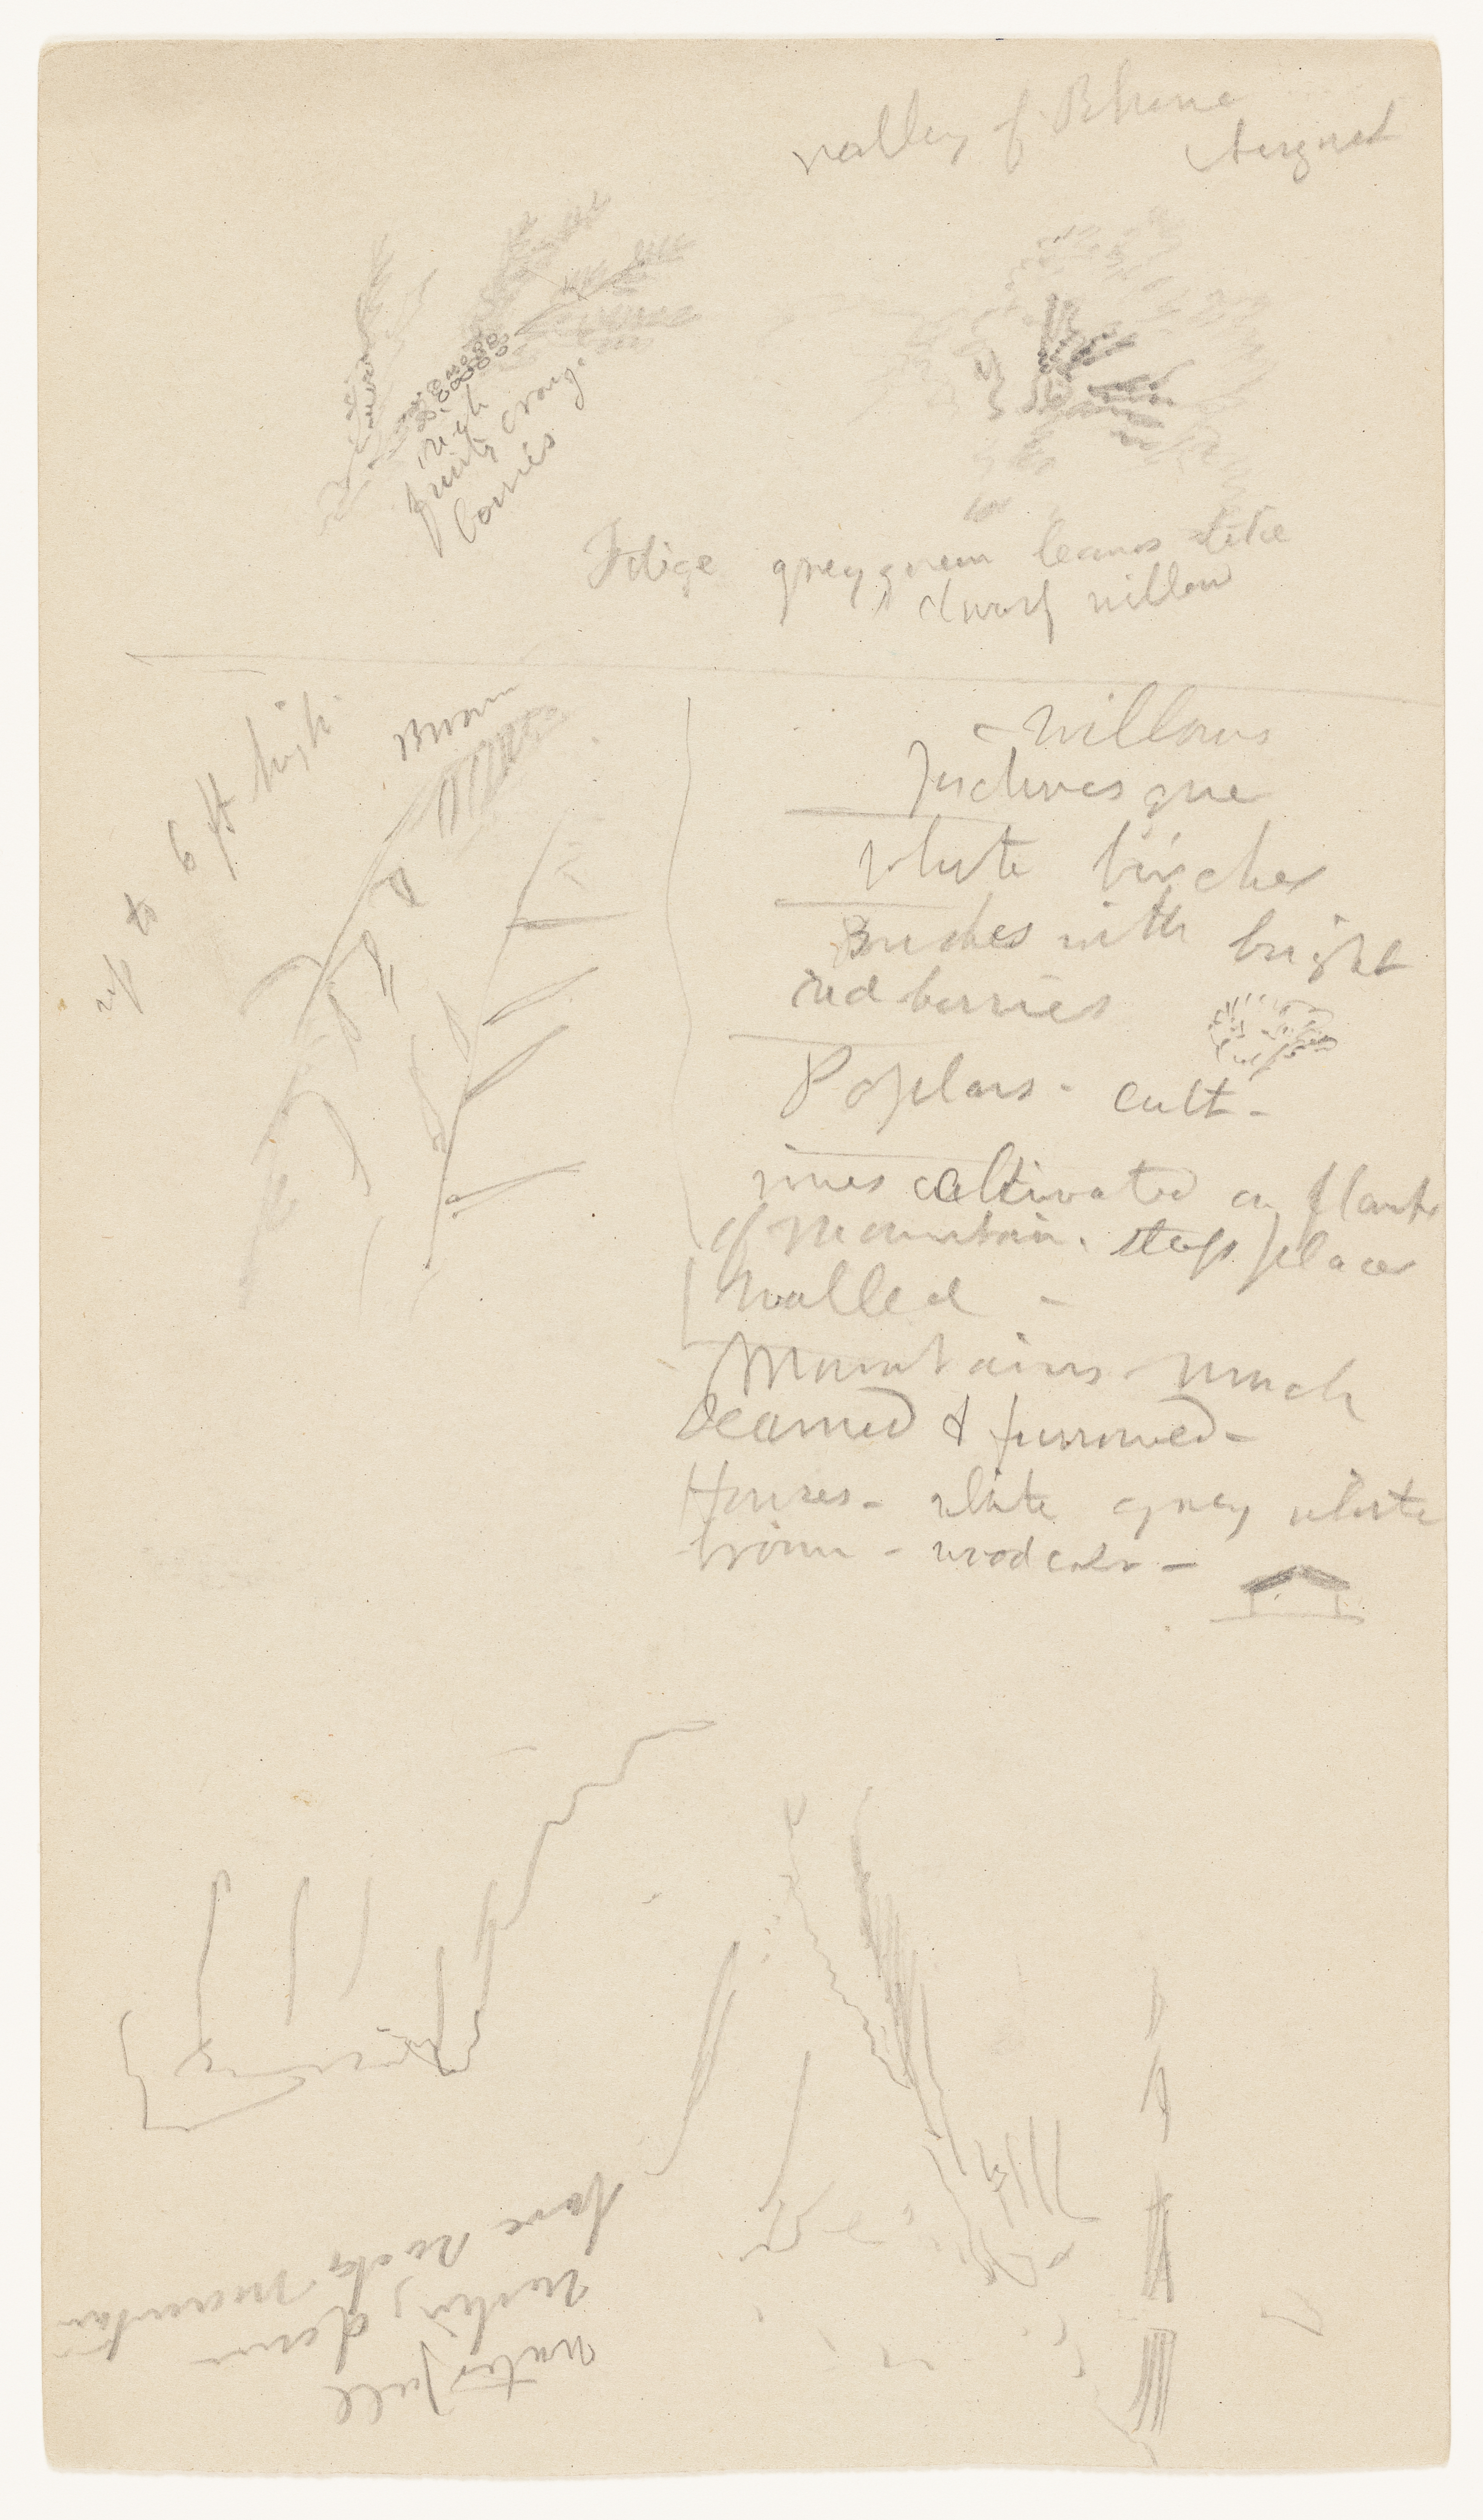 valley of Rhone
August
high
fruity orange
berries
grey green leaves like
dwarf willow
up to 6 ft high
brown
- willows
white birches
Bushes with bright
red berries
Poplars - cult -
vines cultivated on flanks
of mountain. steep places
walled -
Mountains much
seamed & furrowed -
Houses - white grey white
brown - wooden -
waterfall
rushing down
bare rocky mountain